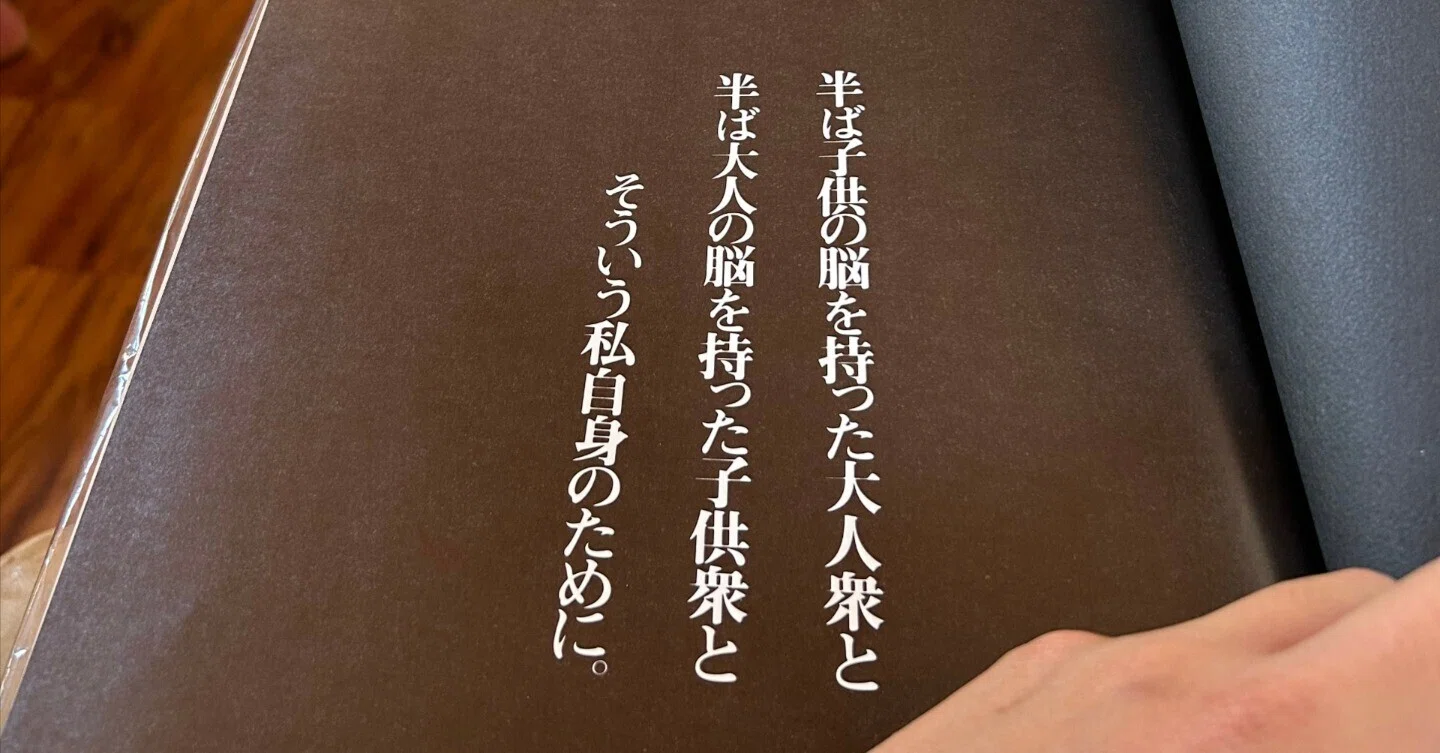 半ば子供の脳を持った大人衆と
半ば大人の脳を持った子供衆と
そういう私自身のために。